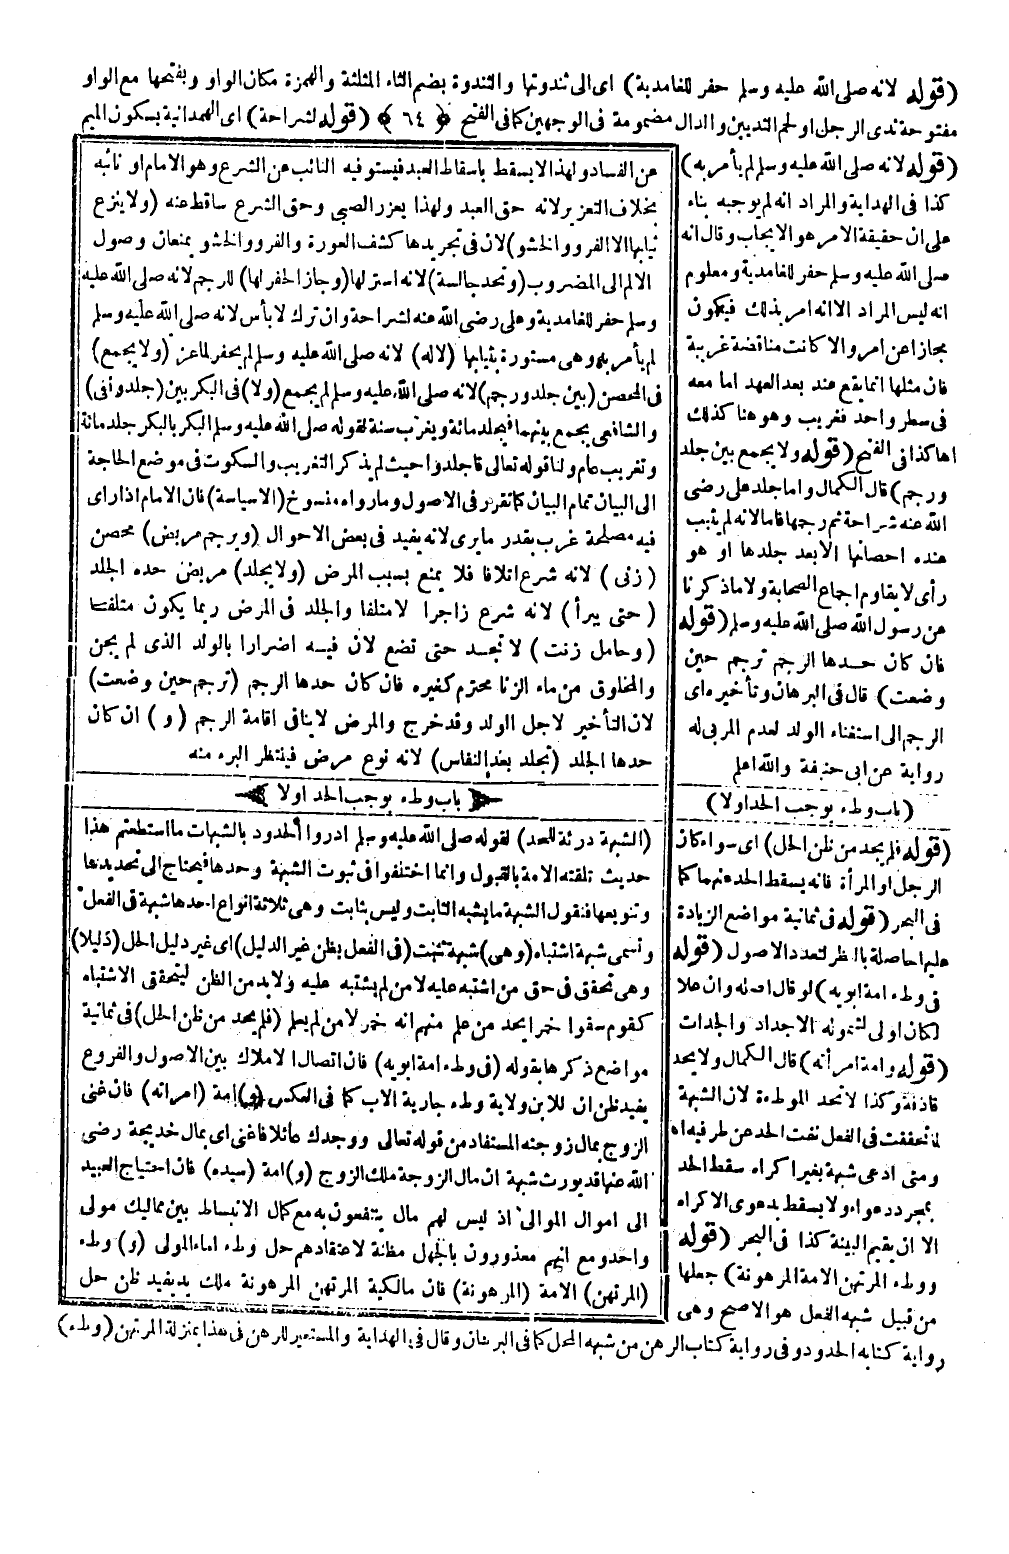 (قوله لانه صلى الله عليه وسلم حفر للغامدية) اى الى ثندوتها والثندوة بضم الثاء المثلثة والهمزة مكان الواو وبفتحها مع الواو
مفتوحة ثدى الرجل او لحم الثديين والدال مضمومة فى الوجهين كما فى الفتح ﴿ ٦٤ ﴾ (قوله لشراحة) اى الهمدانية بسكون الميم
(قوله لانه صلى الله عليه وسلم لم يأمر به)
كذا فى الهداية والمراد انه لم يوجبه بناء
على ان حقيقة الامر هو الايجاب وقال انه
صلى الله عليه وسلم حفر للغامدية ومعلوم
انه ليس المراد الا انه امر بذلك فيكون
مجازا عن امر والا كانت مناقضة غريبة
فان مثلها انما يقع عند بعد العهد اما معه
فى سطر واحد فغريب وهو هنا كذلك
اه كذا فى الفتح (قوله ولا يجمع بين جلد
ورجم) قال الكمال واما جلد على رضى
الله عنه شراحة ثم رجمها فاما لانه لم يثبت
عنده احصانها الا بعد جلدها او هو
رأى لا يقاوم اجماع الصحابة ولا ما ذكرنا
عن رسول الله صلى الله عليه وسلم (قوله
فان كان حدها الرجم ترجم حين
وضعت) قال فى البرهان وتأخيره اى
الرجم الى استغناء الولد لعدم المربى له
رواية عن ابى حنيفة والله اعلم
(باب وطء يوجب الحد اولا)
(قوله فلم يحد من ظن الحل) اى سواء كان
الرجل او المرأة فانه يسقط الحد عنهما كما
فى البحر (قوله فى ثمانية مواضع الزيادة
عليها حاصلة بالنظر لتعدد الاصول (قوله
فى وطء امة ابويه) لو قال اصله وان علا
لكان اولى لشموله الاجداد والجدات
(قوله وامة امرأته) قال الكمال ولا يحد
قاذفه وكذا لا تحد الموطءة لان الشبهة
لما تحققت فى الفعل نفت الحد عن طرفيه اه
ومتى ادعى شبهة بغير اكراه سقط الحد
بمجرد دعواه ولا يسقط بدعوى الاكراه
الا ان يقيم البينة كذا فى البحر (قوله
ووطء المرتهن الامة المرهونة) جعلها
من قبيل شبه الفعل هو الاصح وهى
عن الفساد ولهذا لا يسقط باسقاط العبد فيستوفيه النائب عن الشرع وهو الامام او نائبه
بخلاف التعزير لانه حق العبد ولهذا يعزر الصبى وحق الشرع ساقط عنه (ولا ينزع
ثيابها الا الفرو والحشو) لان فى تجريدها كشف العورة والفرو والحشو يمنعان وصول
الالم الى المضروب (وتحد جالسة) لانه استر لها (وجاز الحفر لها) للرجم لانه صلى الله عليه
وسلم حفر للغامدية وعلى رضى الله عنه لشراحة وان ترك لا بأس لانه صلى الله عليه وسلم
لم يأمر به وهى مستورة بثيابها (لا له) لانه صلى الله عليه وسلم لم يحفر لماعز (ولا يجمع)
فى المحصن (بين جلد ورجم) لانه صلى الله عليه وسلم لم يجمع (ولا) فى البكر بين (جلد ونفى)
والشافعى يجمع بينهما فيجلد مائة ويغرب سنة لقوله صلى الله عليه وسلم البكر بالبكر جلد مائة
وتغريب عام ولنا قوله تعالى فاجلدوا حيث لم يذكر التغريب والسكوت فى موضع الحاجة
الى البيان تمام البيان كما تقرر فى الاصول وما رواه منسوخ (الا سياسة) فان الامام اذا راى
فيه مصلحة غرب بقدر ما يرى لانه يفيد فى بعض الاحوال (ويرجم مريض) محصن
(زنى) لانه شرع اتلافا فلا يمنع بسبب المرض (ولا يجلد) مريض حده الجلد
(حتى يبرأ) لانه شرع زاجرا لا متلفا والجلد فى المرض ربما يكون متلفا
(وحامل زنت) لا تحد حتى تضع لان فيه اضرارا بالولد الذى لم يجن
والمخلوق من ماء الزنا محترم كغيره فان كان حدها الرجم (ترجم حين وضعت)
لان التأخير لاجل الولد وقد خرج والمرض لا ينافى اقامة الرجم (و) ان كان
حدها الجلد (تجلد بعد النفاس) لانه نوع مرض فينتظر البرء منه
باب وطء يوجب الحد اولا
(الشبهة درئة للحد) لقوله صلى الله عليه وسلم ادروا الحدود بالشبهات ما استطعتم هذا
حديث تلقته الامة بالقبول وانما اختلفوا فى ثبوت الشبهة وحدها فيحتاج الى تحديدها
وتنويعها فنقول الشبهة ما يشبه الثابت وليس بثابت وهى ثلاثة انواع احدها شبهة فى الفعل
وتسمى شبهة اشتباه (وهى) شبهة ثبتت (فى الفعل بظن غير الدليل) اى غير دليل الحل (دليلا)
وهى تتحقق فى حق من اشتبه عليه لا من لم يشتبه عليه ولا بد من الظن ليتحقق الاشتباه
كقوم سقوا خمرا يحد من علم منهم انه خمر لا من لم يعلم (فلم يحد من ظن الحل) فى ثمانية
مواضع ذكرها بقوله (فى وطء امة ابويه) فان اتصال الاملاك بين الاصول والفروع
يفيد ظن ان للابن ولاية وطء جارية الاب كما فى العكس (و) امة (امرأته) فان غنى
الزوج بمال زوجته المستفاد من قوله تعالى ووجدك عائلا فاغنى اى بمال خديجة رضى
الله عنها قد يورث شبهة ان مال الزوجة ملك الزوج (و) امة (سيده) فان احتياج العبيد
الى اموال الموالى اذ ليس لهم مال ينتفعون به مع كمال الانبساط بين مماليك مولى
واحد ومع انهم معذورون بالجهل مظنة لاعتقادهم حل وطء اماء المولى (و) وطء
(المرتهن) الامة (المرهونة) فان مالكية المرتهن المرهونة ملك يد يفيد ظن حل
رواية كتابه الحدود وفى رواية كتاب الرهن من شبهه المحل كما فى البرهان وقال فى الهداية والمستعير للرهن فى هذا بمنزلة المرتهن (وطء)